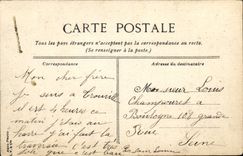 CARTE POSTALE
Tous les pays étrangers n'acceptent pas la correspondance au recto.
(Se renseigner à la poste.)
Correspondance
Adresse du destinataire
Mon cher frère
je suis à Trouville
il est 4 heures ce
matin j'étais au
havre j'ai fait la
c'est très
Monsieur Louis
Champouret à
Boulogne 108 grande
Rue
Seine